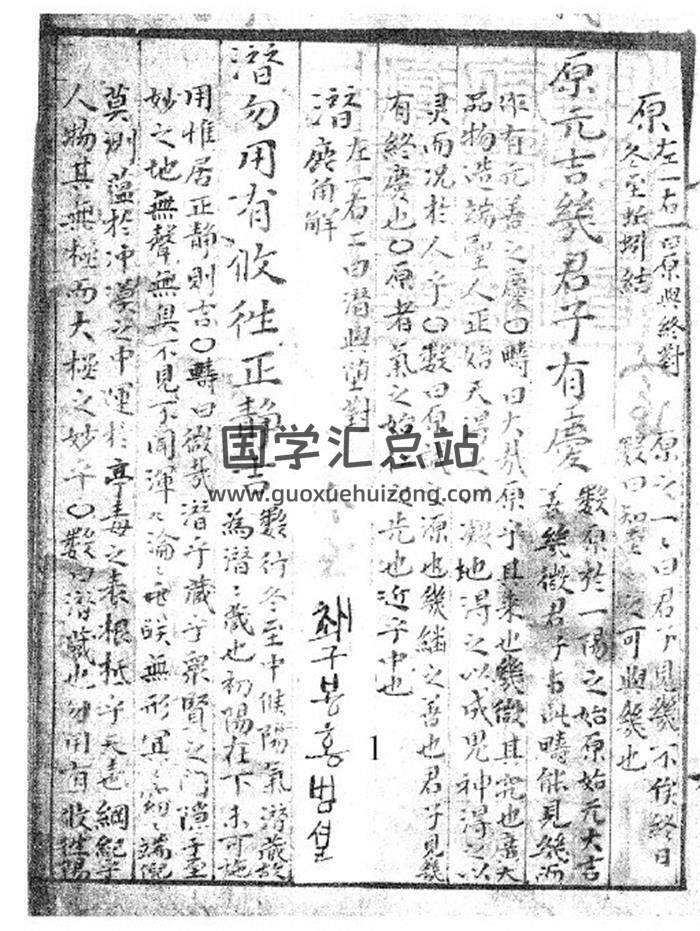 原 左一右一曰原與終對
冬至蚯蚓結
原之一一曰君子見幾不俟終日
數曰知 可與幾也
原元吉幾君子有慶
數原於一陽之始原始元大吉
善幾微君子占此疇能見幾而
作有元善之慶〇疇曰大哉原乎其來也幾微其究也廣大
品物造端聖人正始天得之 地得之以成鬼神得之以
灵而況於人乎〇數曰原 源也幾繼之善也君子見幾
有終慶也〇原者氣之始 也近乎中也
潛 左一右二曰潛與墮對
麋角解
채구봉홍범
1
潛勿用有攸往正靜吉
數行冬至中候陽氣潛藏故
為潛潛藏也初陽在下未可施
用惟居正靜則吉〇疇曰微哉潛乎藏乎衆賢之門 乎至
妙之地無聲無臭不見不聞渾渾淪淪 無形冥冥 端倪
莫測蘊於沖漠之中運於亭毒之表根柢乎天 綱紀乎
人物其無極而大極之妙乎〇數曰潛藏也勿用有攸往陽
国学汇总站
www.guoxuehuizong.com